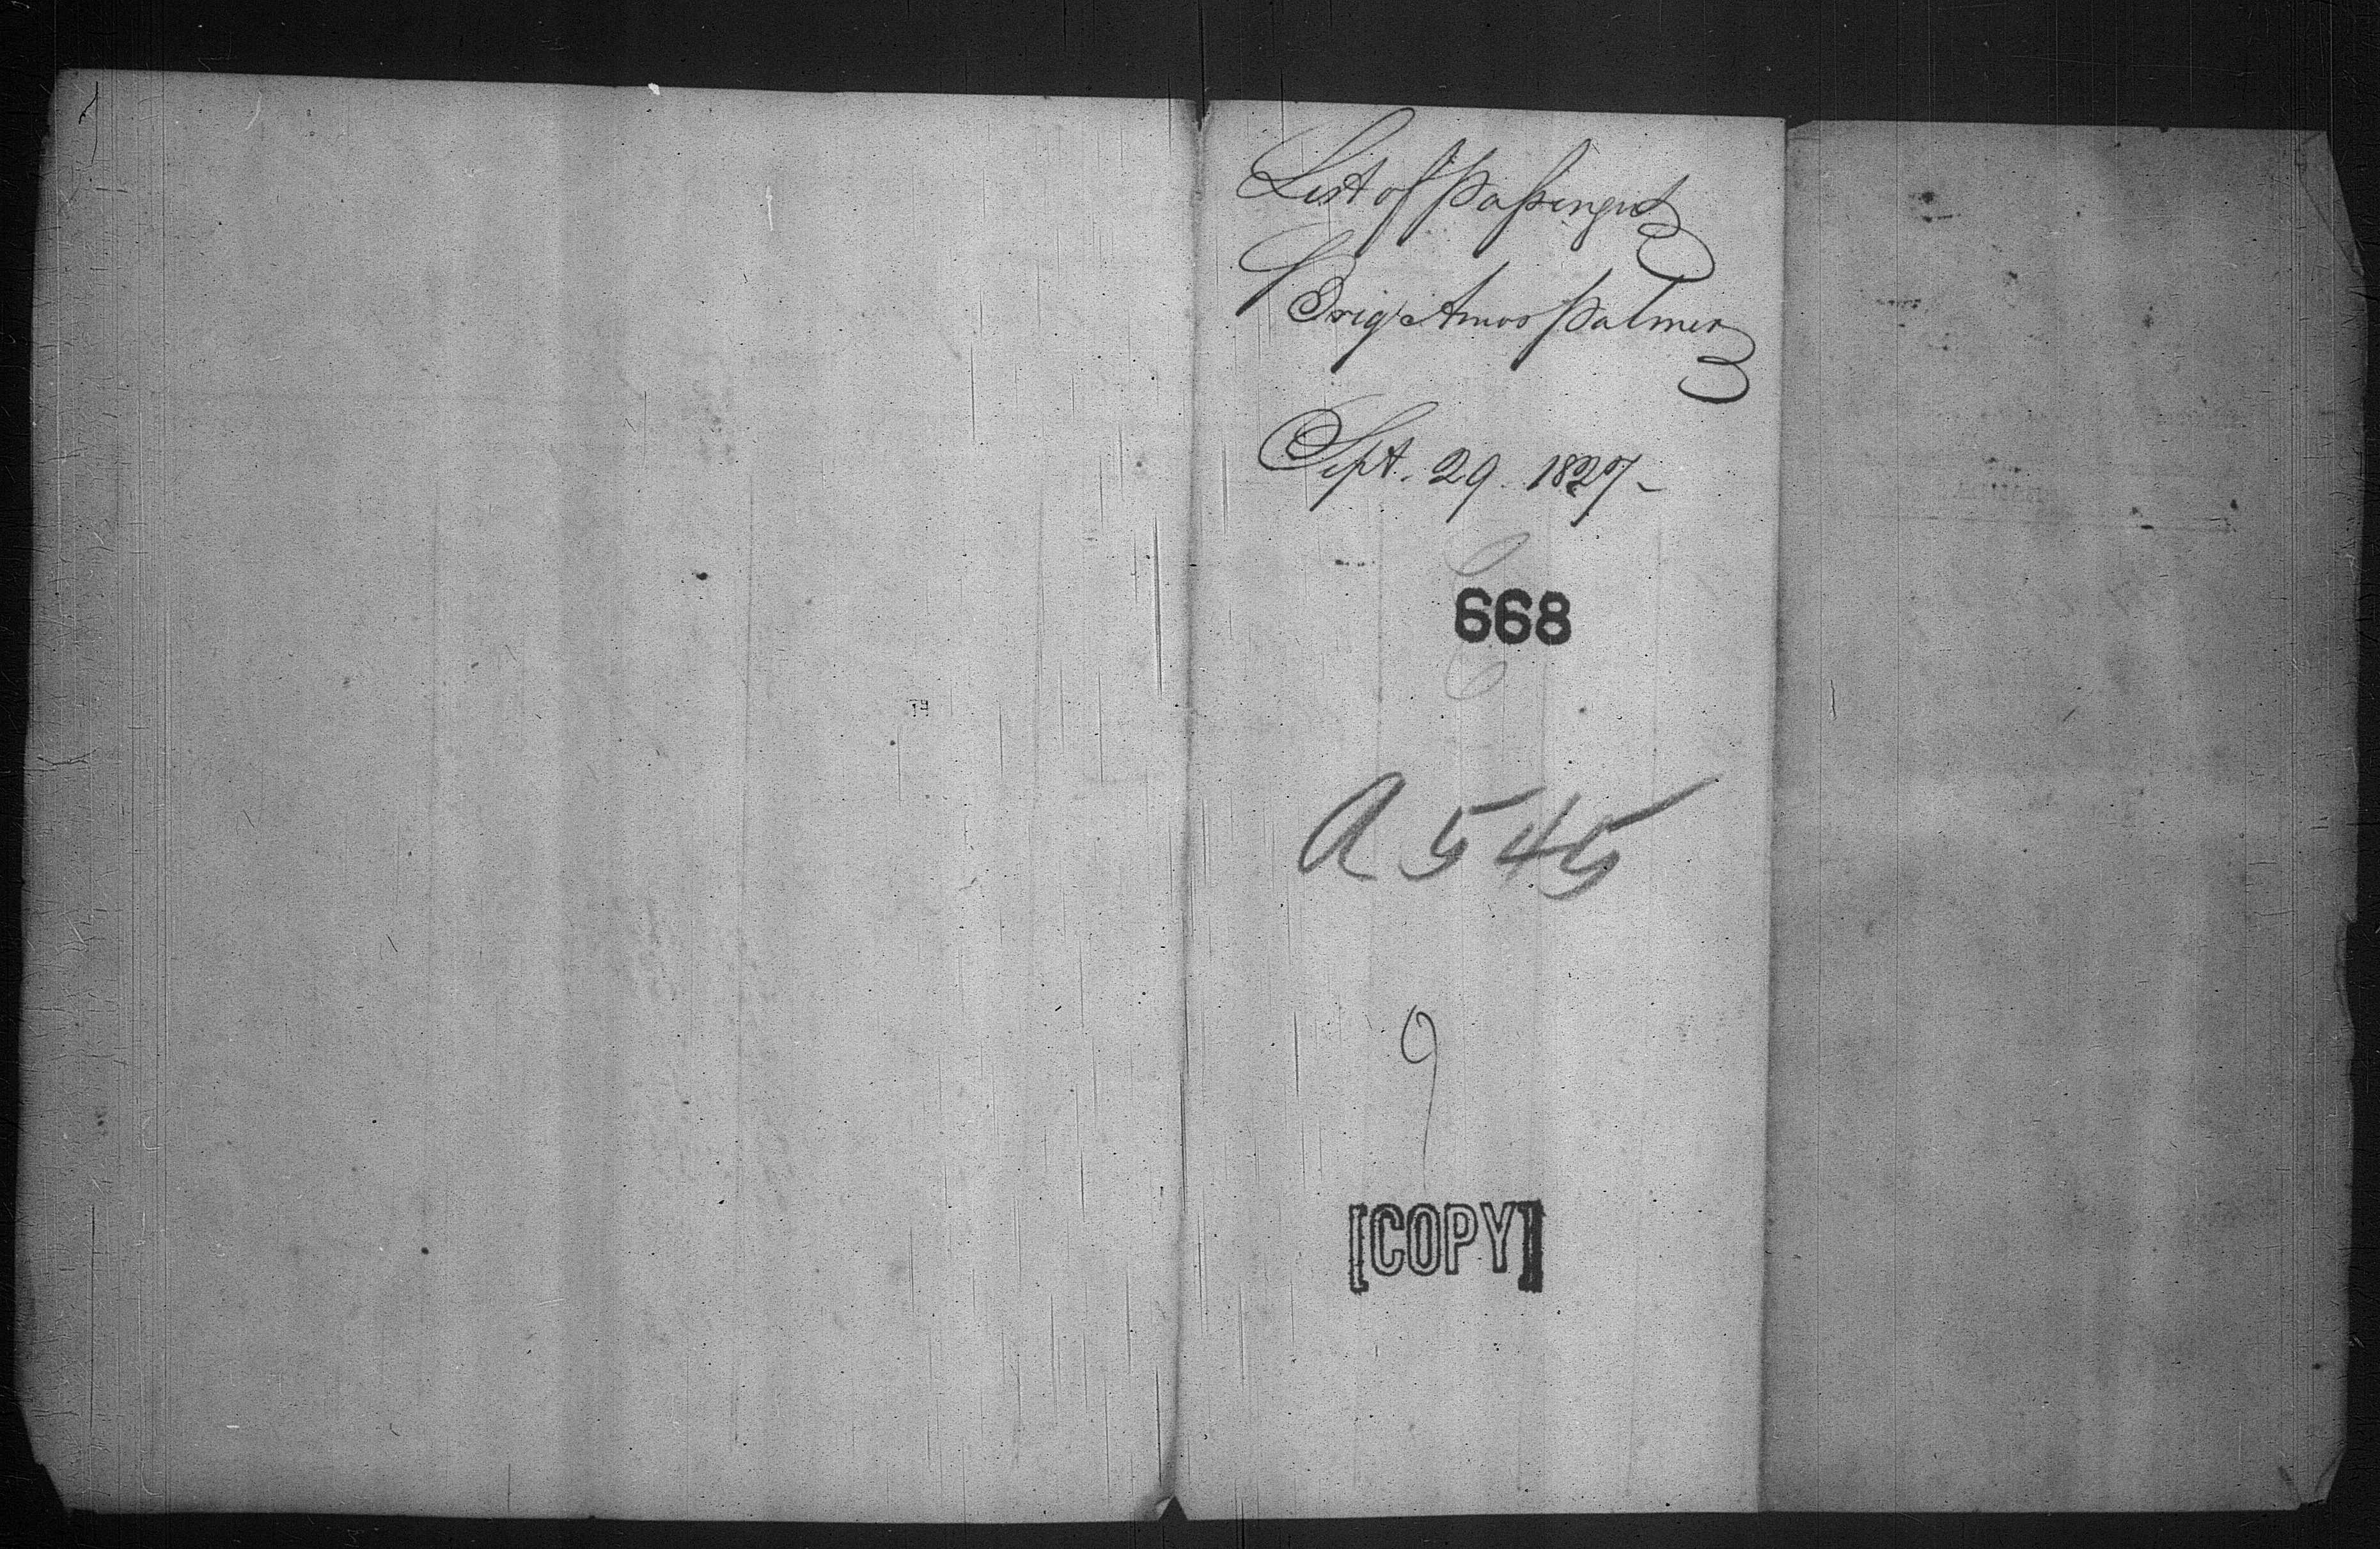 List of Passengers
Brig Amos Palmer
Sept. 29. 1827-
668
A 545
9
[COPY]